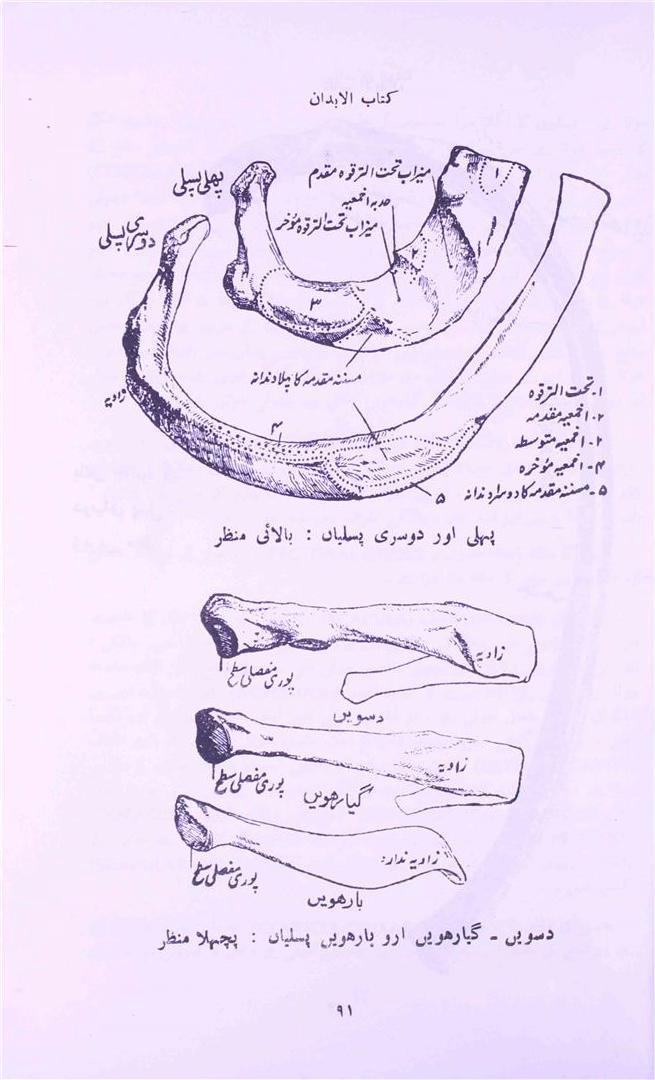 كتاب الابدان
میزاب تحت الترقوہ مقدم
حدبہ اخمعیہ
میزاب تحت الترقوہ مؤخر
پہلی پسلی
دوسری پسلی
۱
۲
۳
مسننہ مقدمہ کا پہلا دندانہ
زاویہ
۴
۵
۱۔ تحت الترقوہ
۲۔ اخمعیہ مقدمہ
۲۔ اخمعیہ متوسطہ
۴۔ اخمعیہ مؤخرہ
۵۔ مسننہ مقدمہ کا دوسرا دندانہ
پہلی اور دوسری پسلیاں : بالائی منظر
زاویہ
پوری مفصلی سطح
دسویں
زاویہ
پوری مفصلی سطح
گیارھویں
زاویہ ندارد
پوری مفصلی سطح
بارھویں
دسویں ۔ گیارھویں ارو بارھویں پسلیاں : پچھلا منظر
۹۱